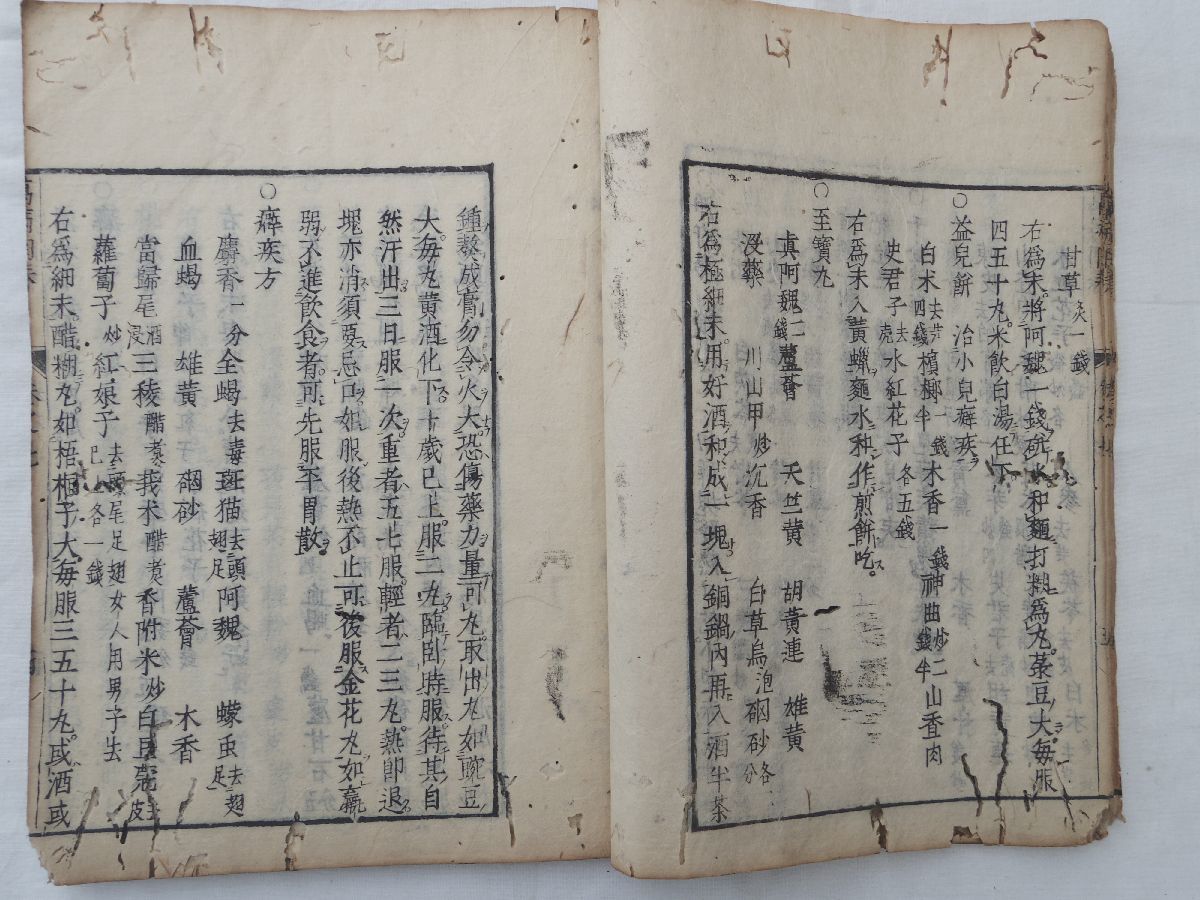 甘草炙一錢
右爲末將阿魏一錢研水和麵打糊爲丸菉豆大每服
四五十丸米飲白湯任下
○益兒餅　治小兒癖疾ヲ
白朮去芦四錢檳榔一錢半木香一錢神曲炒二錢半山査肉
史君子去売水紅花子各五錢
右爲末入黃蠟麵水和作煎餅吃
○至寶丸
眞阿魏二錢蘆薈　天竺黃　胡黃連　雄黃
沒藥　川山甲炒沉香　白草烏泡硇砂各分
右爲極細末用好酒和成一塊入銅鍋內再入酒半茶
鍾熬成膏勿令火大恐傷藥力量可丸取出丸如豌豆
大每丸黃酒化下十歲已上服二丸臨卧時服待其自
然汗出三日服一次重者五七服輕者二三丸熱即退
塊亦消須要忌口如服後熱不止可後服金花丸如羸
弱不進飲食者可先服平胃散
○癖疾方
麝香一分全蝎去毒斑猫去頭翅足阿魏　蠓虫去翅足
血蝎　雄黃　硇砂　蘆薈　木香
當歸尾酒浸三稜醋煮莪朮醋煮香附米炒白豆蔻去皮
蘿蔔子炒紅娘子去頭尾足翅女人用男子去已上各一錢
右爲細末醋糊丸如梧桐子大每服三五十丸或酒或